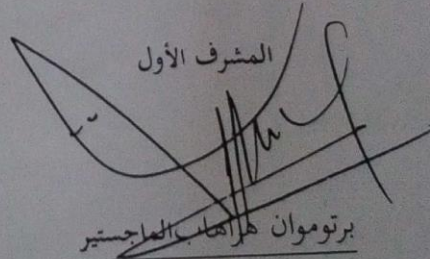 المشرف الأول
برتوموان هراهاب الماجستير